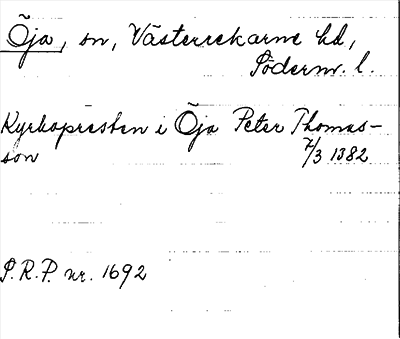 Öja, sn, Västerrekarne hd,
Söderm. l.
Kyrkopresten i Öja Peter Thomas-
son 7/3 1382
S.R.P. nr. 1692